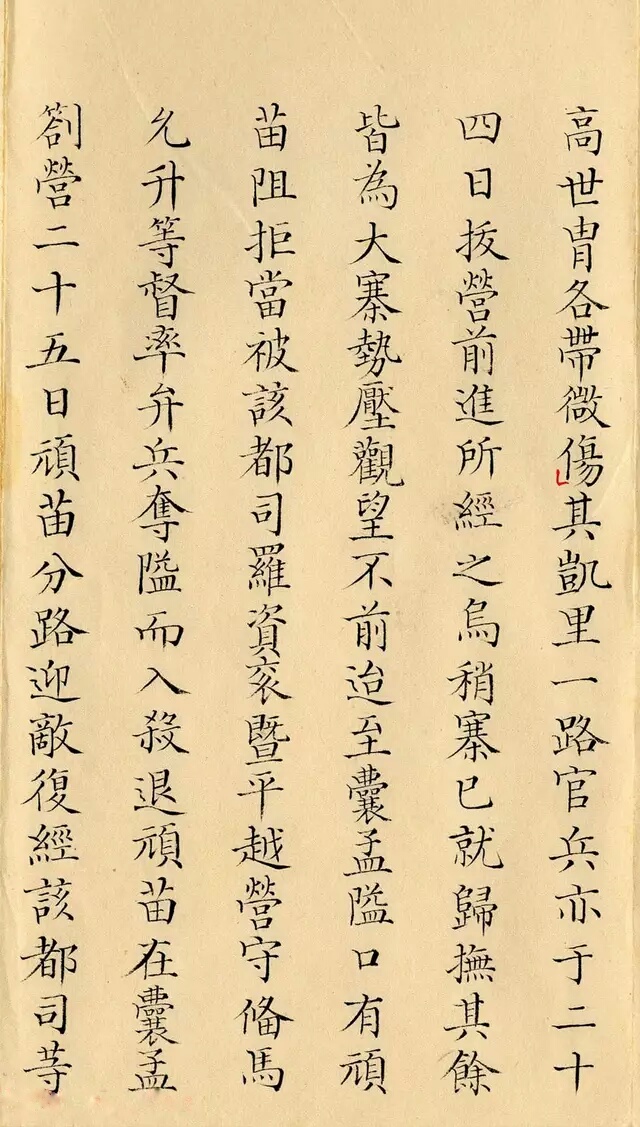 高世胄各帶微傷其凱里一路官兵亦于二十
四日拔營前進所經之烏稍寨已就歸撫其餘
皆為大寨勢壓觀望不前迨至囊孟隘口有頑
苗阻拒當被該都司羅資袞暨平越營守俻馬
允升等督率弁兵奪隘而入殺退頑苗在囊孟
劄營二十五日頑苗分路迎敵復經該都司等